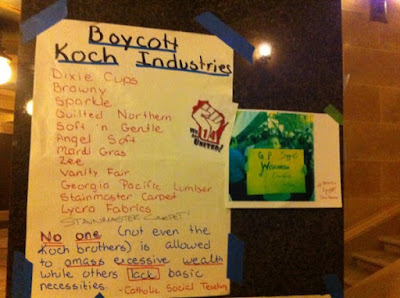 Boycott
Koch Industries
Dixie Cups
Brawny
Sparkle
Quilted Northern
Soft 'n Gentle
Angel Soft
Mardi Gras
Zee
Vanity Fair
Georgia Pacific Lumber
Stainmaster Carpet
Lycra Fabrics
STAINMASTER CARPET
No one (not even the
Koch brothers) is allowed
to amass excessive wealth
while others lack basic
necessities. -Catholic Social Teaching
14
UNITED!
Wisconsin